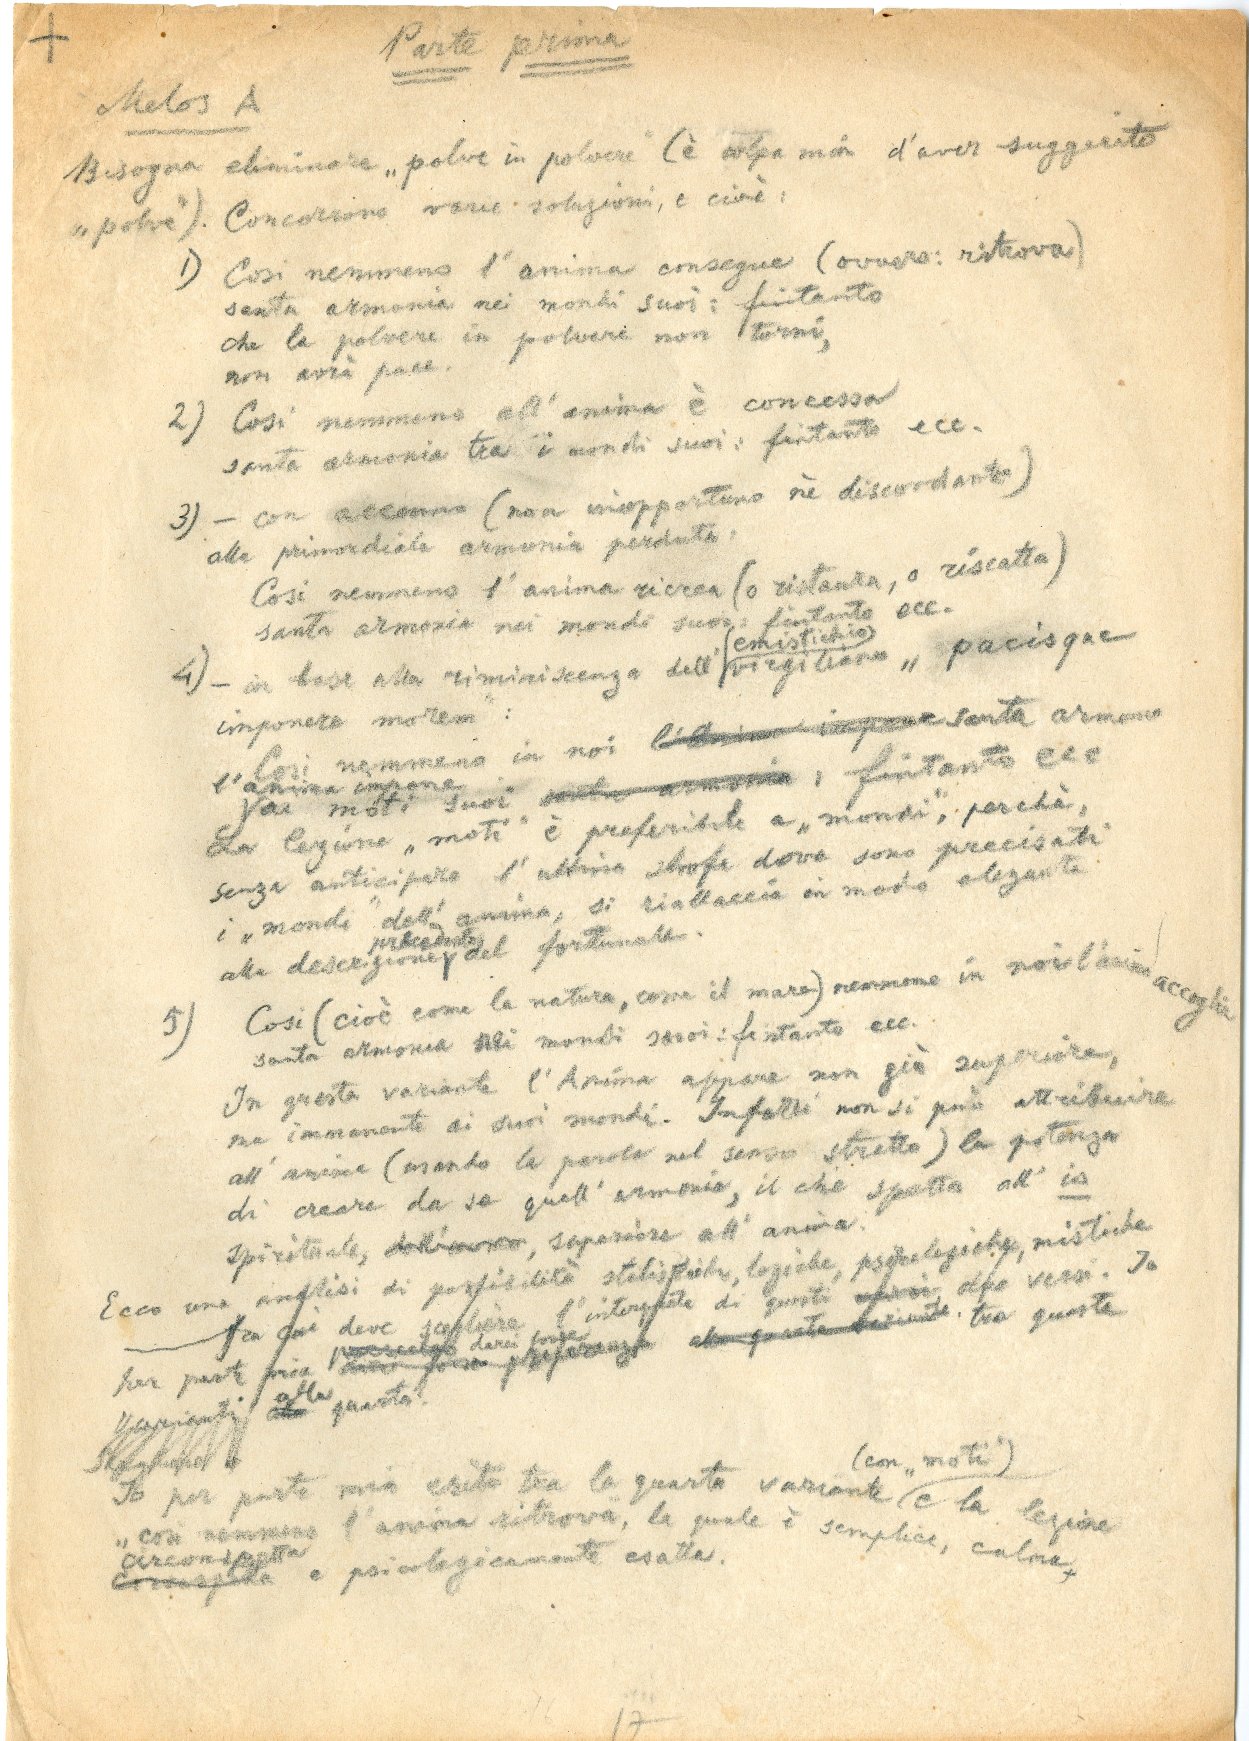 Parte prima
Melos A
Bisogna eliminare „polve in polvere" (è colpa mia d'aver suggerito
„polve"). Concorrono varie soluzioni, e cioè:
1) Così nemmeno l'anima consegue (ovvero: ritrova)
santa armonia nei mondi suoi: fintanto
che la polvere in polvere non torni,
non avrà pace.
2) Così nemmeno all'anima è concessa
santa armonia tra i mondi suoi: fintanto ecc.
3) – con accenno (non inopportuno nè discordante)
alla primordiale armonia perduta:
Così nemmeno l'anima ricrea (o ristaura, o riscatta)
santa armonia nei mondi suoi: fintanto ecc.
4) – in base alla riminiscenza dell'(emistichio) virgiliano „pacisque
imponere morem":
Così nemmeno in noi l'anima impone santa armonia
l'anima impone
ai moti suoi santa armonia: fintanto ecc
La lezione „moti" è preferibile a „mondi", perchè,
senza anticipare l'ultima strofa dove sono precisati
i „mondi" dell'anima, si riallaccia in modo elegante
alla descrizione precedente del fortunale.
5) Così (cioè come la natura, come il mare) nemmeno in noi l'anima accoglie
santa armonia nei mondi suoi: fintanto ecc.
In questa variante l'Anima appare non già superiore,
ma immanente ai suoi mondi. Infatti non si può attribuire
all'anima (usando la parola nel senso stretto) la potenza
di creare da se quell'armonia, il che spetta all'io
spirituale, superiore all'anima.
Ecco una analisi di possibilità stilistiche, logiche, psicologiche, mistiche
fra cui deve scegliere l'interprete di questi due versi. Io
per parte mia darei forse preferenza alla quarta variante tra queste
varianti alla quarta.
Io per parte mia esito tra la quarta variante (con „moti") e la lezione
„così nemmeno l'anima ritrova, la quale è semplice, calma,
circonspetta e psicologicamente esatta.
17